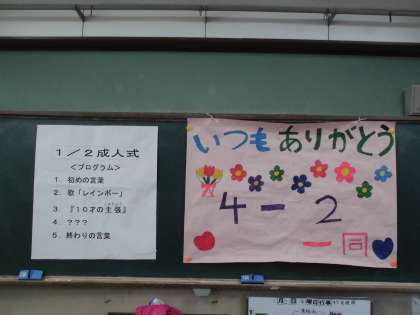 1/2成人式
<プログラム>
1. 初めの言葉
2. 歌「レインボー」
3. 『10才の主張』
4. ???
5. 終わりの言葉
いつもありがとう
4-2
一同